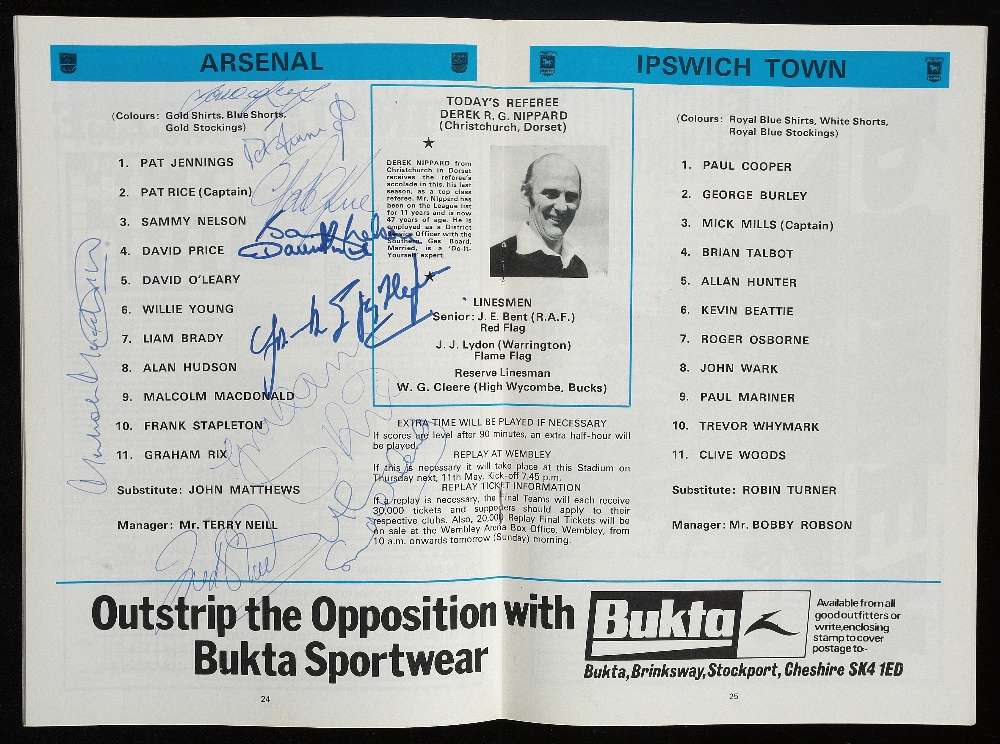 ARSENAL
(Colours: Gold Shirts, Blue Shorts,
Gold Stockings)
1. PAT JENNINGS
2. PAT RICE (Captain)
3. SAMMY NELSON
4. DAVID PRICE
5. DAVID O'LEARY
6. WILLIE YOUNG
7. LIAM BRADY
8. ALAN HUDSON
9. MALCOLM MACDONALD
10. FRANK STAPLETON
11. GRAHAM RIX
Substitute: JOHN MATTHEWS
Manager: Mr. TERRY NEILL
TODAY'S REFEREE
DEREK R. G. NIPPARD
(Christchurch, Dorset)
DEREK NIPPARD from
Christchurch in Dorset
receives the referee's
accolade in this, his last
season, as a top class
referee. Mr. Nippard has
been on the League list
for 11 years and is now
47 years of age. He is
employed as a District
Service Officer with the
Southern Gas Board.
Married, is a 'Do-It-
Yourself' expert.
LINESMEN
Senior: J. E. Bent (R.A.F.)
Red Flag
J. J. Lydon (Warrington)
Flame Flag
Reserve Linesman
W. G. Cleere (High Wycombe, Bucks)
EXTRA TIME WILL BE PLAYED IF NECESSARY
If scores are level after 90 minutes, an extra half-hour will
be played.
REPLAY AT WEMBLEY
If this is necessary it will take place at this Stadium on
Thursday next, 11th May. Kick-off 7.45 p.m.
REPLAY TICKET INFORMATION
If a replay is necessary, the Final Teams will each receive
30,000 tickets and supporters should apply to their
respective clubs. Also, 20,000 Replay Final Tickets will be
on sale at the Wembley Arena Box Office, Wembley, from
10 a.m. onwards tomorrow (Sunday) morning.
IPSWICH TOWN
(Colours: Royal Blue Shirts, White Shorts,
Royal Blue Stockings)
1. PAUL COOPER
2. GEORGE BURLEY
3. MICK MILLS (Captain)
4. BRIAN TALBOT
5. ALLAN HUNTER
6. KEVIN BEATTIE
7. ROGER OSBORNE
8. JOHN WARK
9. PAUL MARINER
10. TREVOR WHYMARK
11. CLIVE WOODS
Substitute: ROBIN TURNER
Manager: Mr. BOBBY ROBSON
Outstrip the Opposition with
Bukta Sportwear
Bukta
Available from all
good outfitters or
write, enclosing
stamp to cover
postage to-
Bukta, Brinksway, Stockport, Cheshire SK4 1ED
24
25